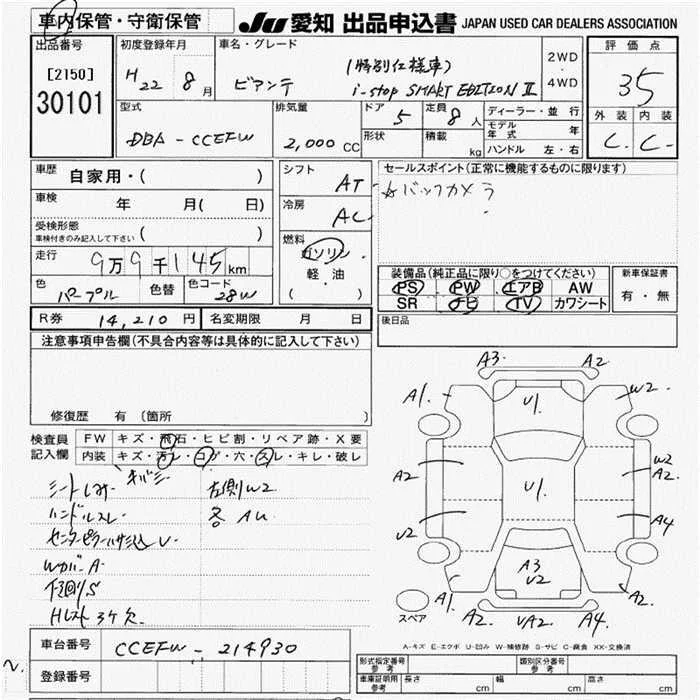 車内保管・守衛保管
JU 愛知 出品申込書 JAPAN USED CAR DEALERS ASSOCIATION
出品番号
[2150]
30101
初度登録年月
H22 8月
車名・グレード
ビアンテ
(特別仕様車)
i-stop SMART EDITION II
2WD
4WD
評価点
35
外装 内装
C C-
型式
DBA-CCEFW
排気量
2,000 CC
ドア 5
形状
定員 8人
積載 kg
ディーラー・並行
モデル年式 年
ハンドル 左・右
車歴 自家用・( )
車検 年 月( 日)
受検形態
車検付きのみ記入して下さい ( )
走行 9万9千145km
色 パープル 色替 色コード 28W
シフト AT
冷房 AC
燃料
ガソリン・
軽・油
( )
セールスポイント(正常に機能するものに限ります)
☆バックカメラ
装備品(純正品に限り○をつけてください)
PS PW エアB AW
SR ナビ TV カワシート
新車保証書
有・無
R券 14,210円 名変期限 月 日
後日品
注意事項申告欄(不具合内容等は具体的に記入して下さい)
修復歴 有(箇所 )
検査員記入欄
FW キズ・飛石・ヒビ割・リペア跡・X要
内装 キズ・汚レ・コゲ・穴・スレ・キレ・破レ
シートしみ・キバミ 左側W2
ハンドルスレ 各AU
センターピラー V
WカバーA
下回りS
Hレスト3ケ欠
A3 A2
A1 U1 W2
A2 U1 W2 A2
U2 A4
A3 U2
A1 A2
UA2 A4
スペア
A-キズ E-エクボ U-凹み W-補修跡 S-サビ C-腐食 XX-交換済
車台番号 CCEFW-214930
登録番号
形式指定番号 参考
類別区分番号 参考
車庫証明用 参考 長さ cm 幅 cm 高さ cm